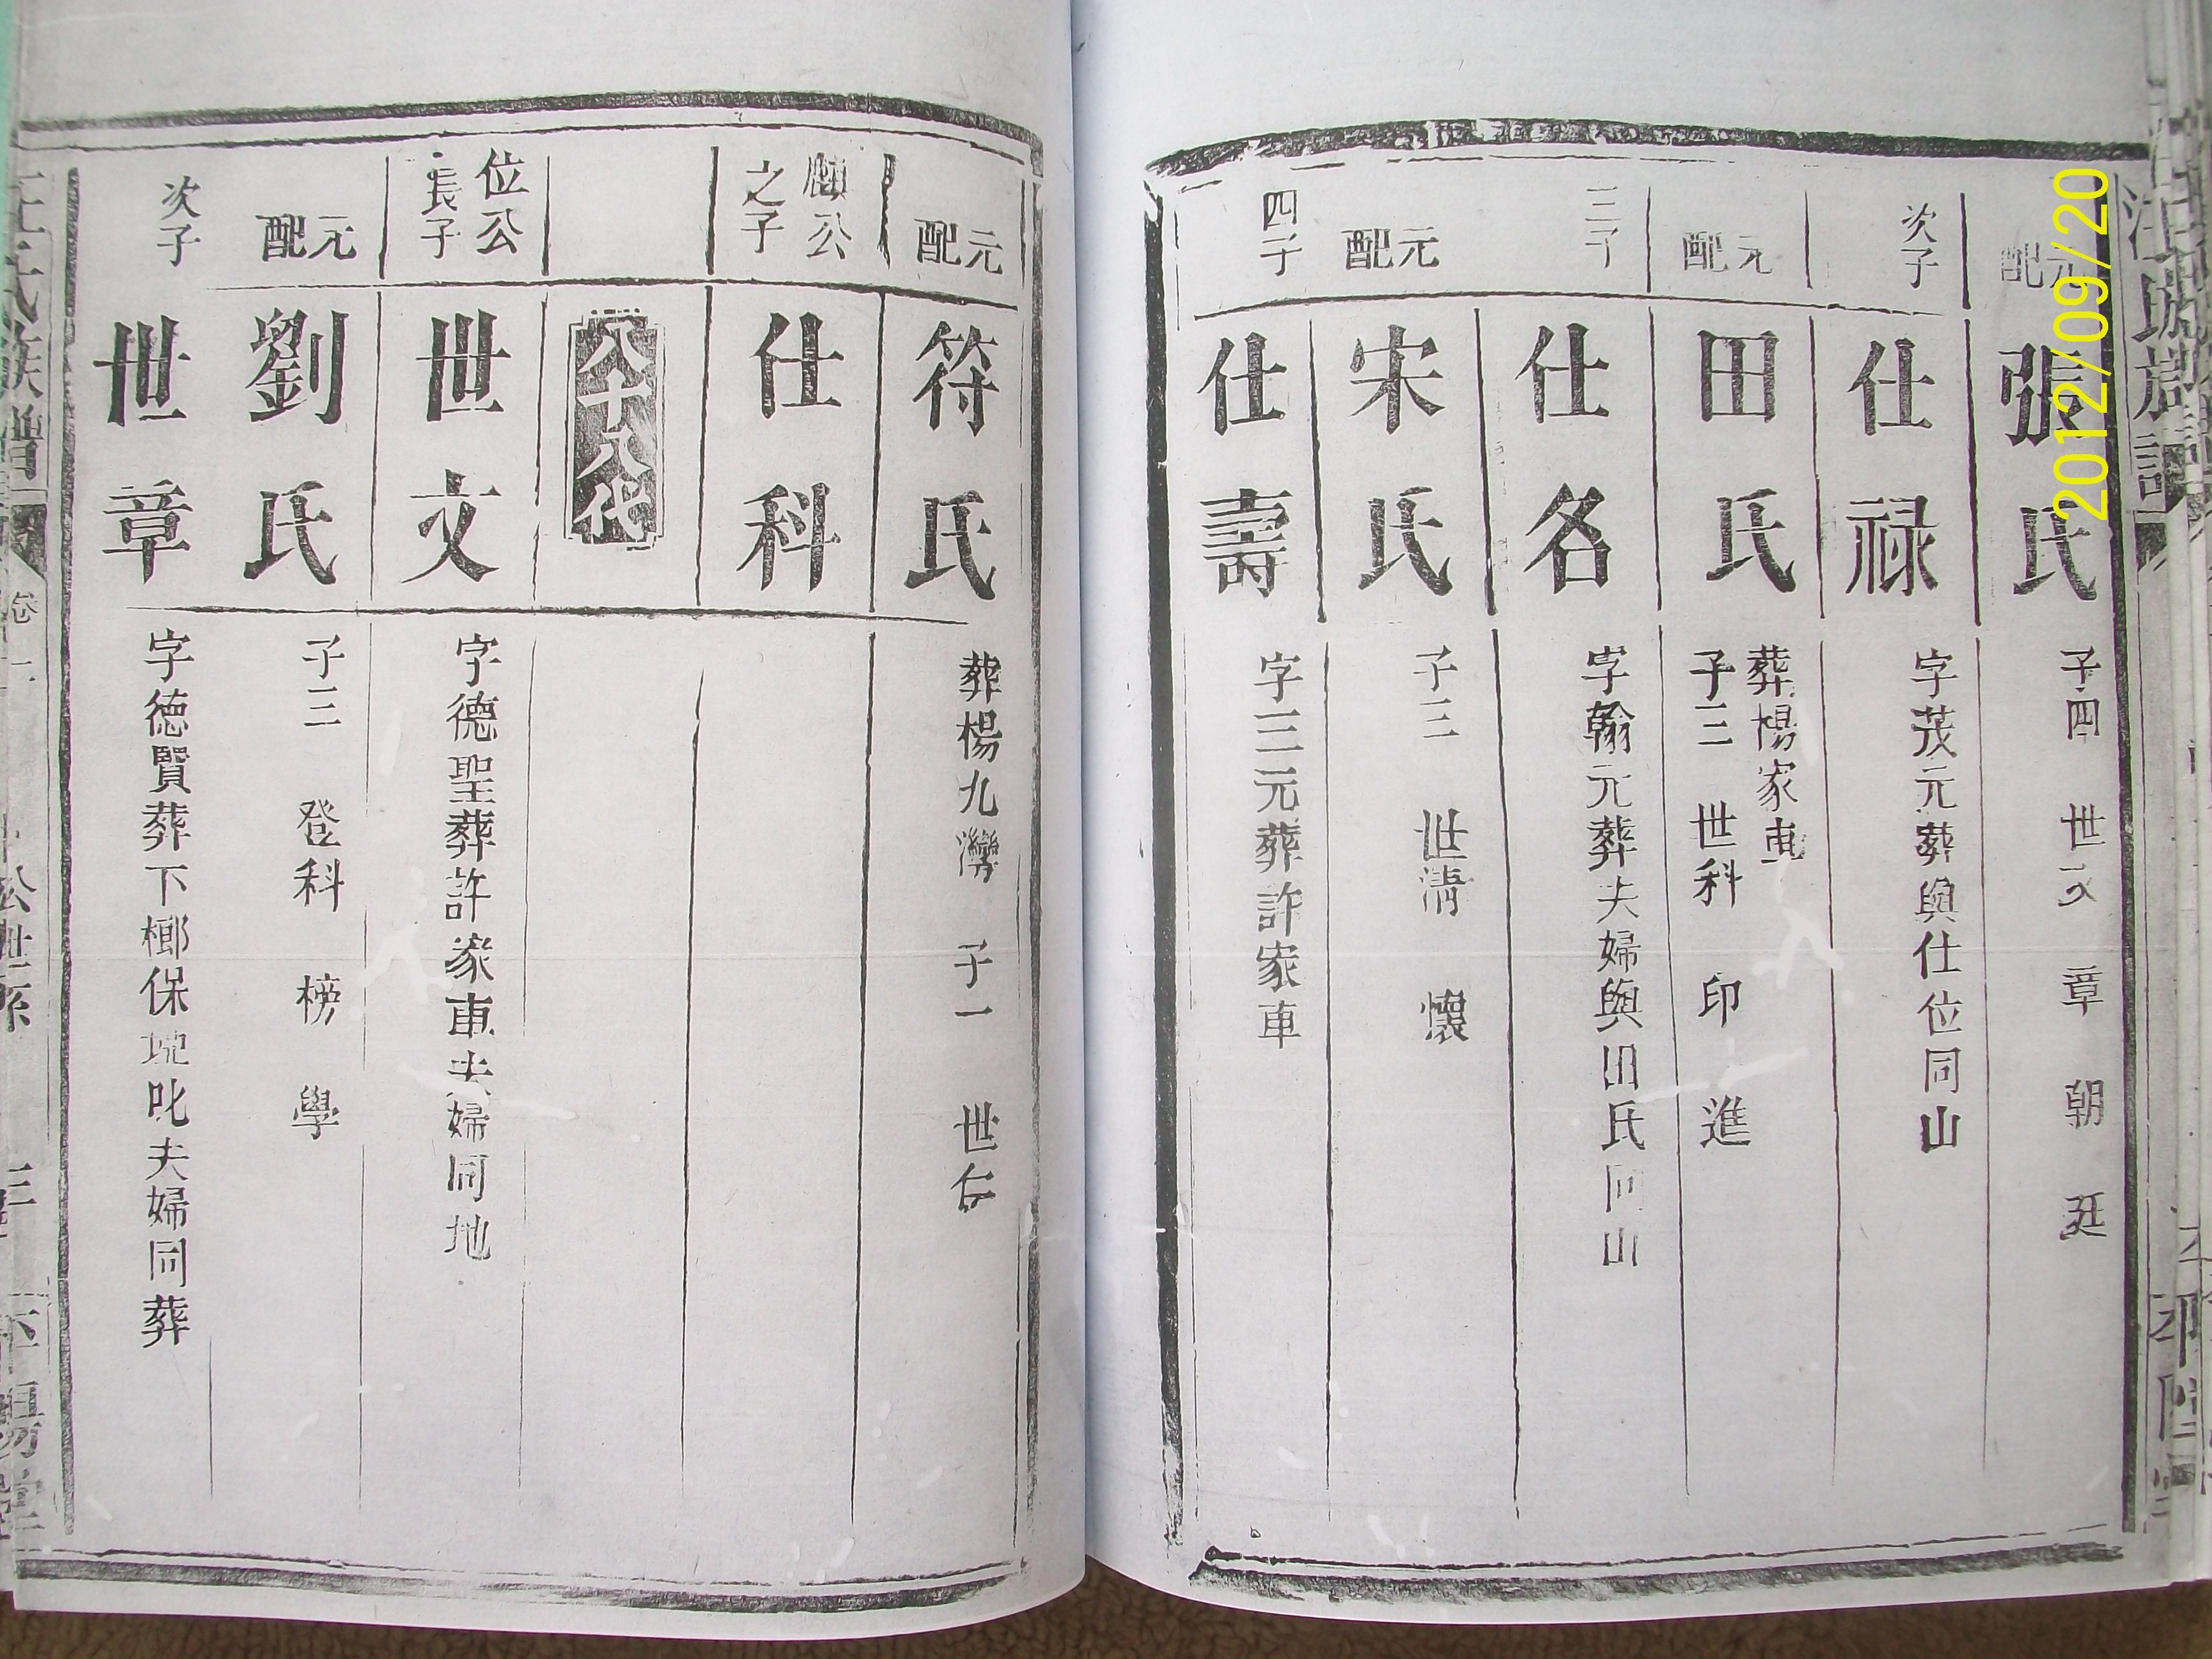 2012/09/20
元配
張氏
子四 世文 章 朝 廷
次子
仕禄
字茂元葬與仕位同山
元配
田氏
葬楊家車
子三 世科 印 進
三子
仕名
字翰元葬夫婦與田氏同山
元配
宋氏
子三 世清 懷
四子
仕壽
字三元葬許家車
元配
符氏
葬楊九灣 子一 世仁
公
之子
仕科
八十八代
位公
長子
世文
字德聖葬許家車夫婦同地
元配
劉氏
子三 登科 榜 學
次子
世章
字德賢葬下榔保坨叱夫婦同葬
汪氏族譜
公世系
平陽堂